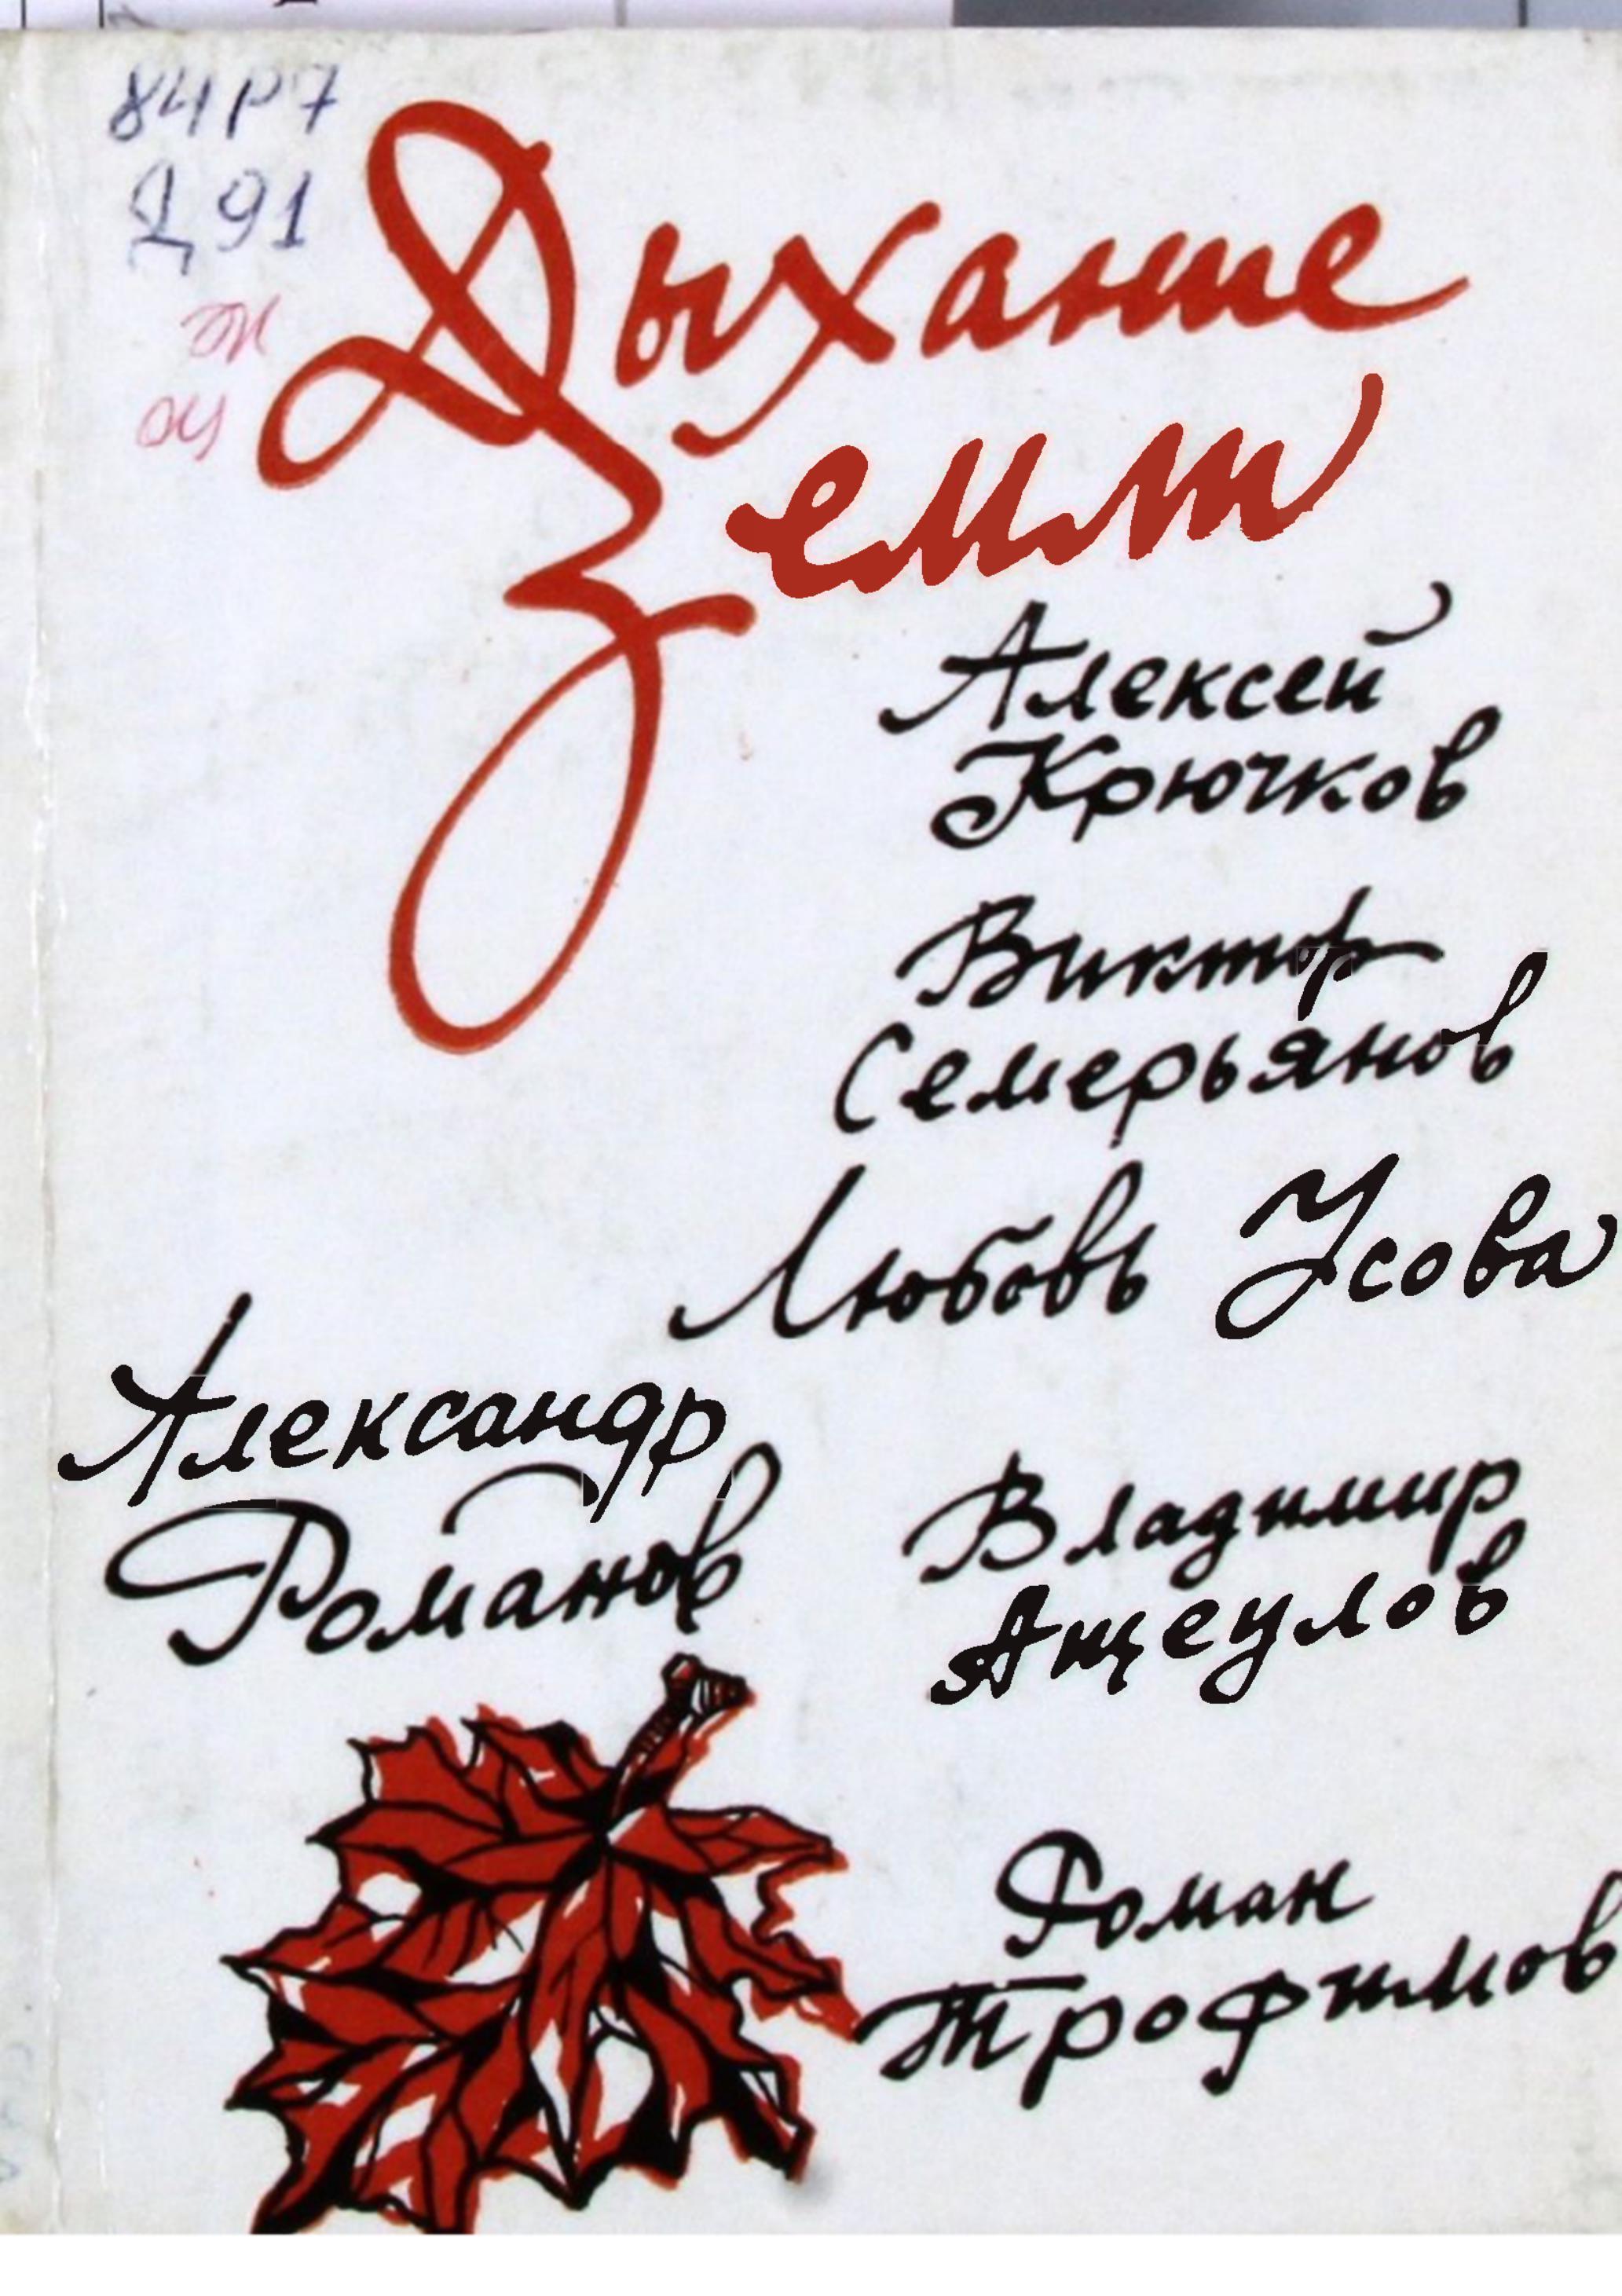 84Р7
Д91
Дыхание
Земли
Алексей
Крючков
Виктор
Семерьянов
Любовь Усова
Александр
Романов
Владимир
Ащеулов
Роман
Трофимов